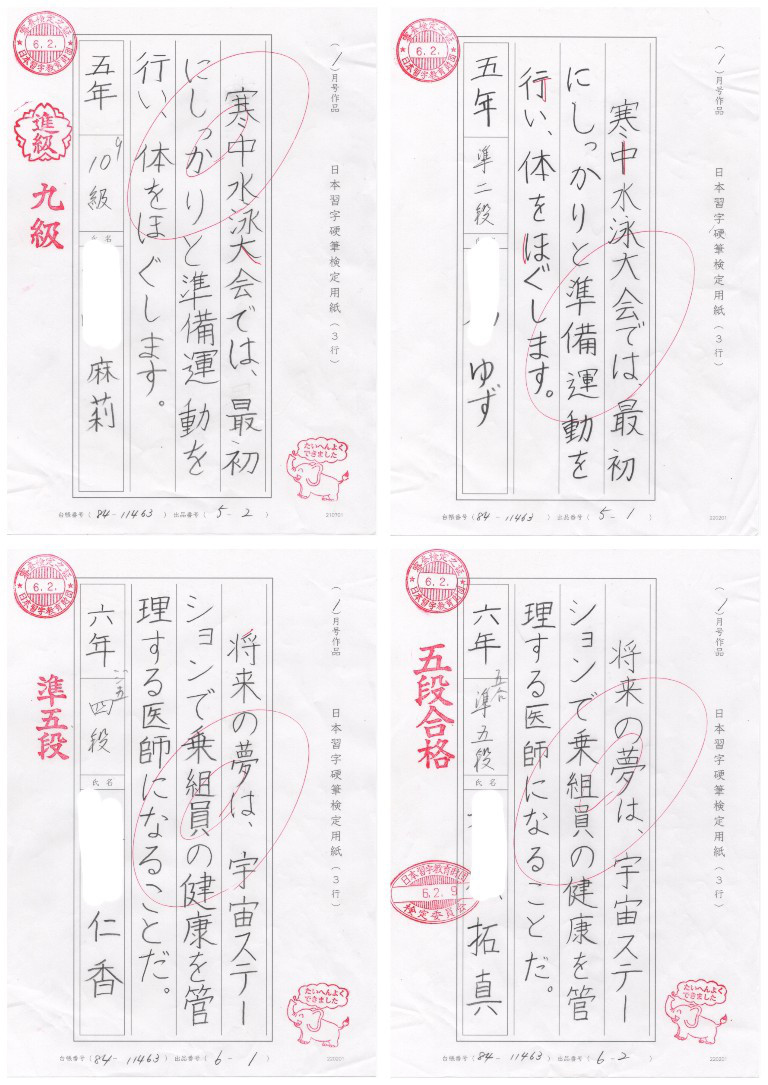 (1)月号作品
日本習字硬筆検定用紙(3行)
寒中水泳大会では、最初
にしっかりと準備運動を
行い、体をほぐします。
五年
10級
9
氏名
麻莉
6.2.
日本習字教育財団
進級
九級
たいへんよく
できました
台帳番号(84-11463) 出品番号(5-2)
210701
(1)月号作品
日本習字硬筆検定用紙(3行)
寒中水泳大会では、最初
にしっかりと準備運動を
行い、体をほぐします。
五年
準二段
ゆず
6.2.
日本習字教育財団
台帳番号(84-11463) 出品番号(5-1)
220201
(1)月号作品
日本習字硬筆検定用紙(3行)
将来の夢は、宇宙ステー
ションで乗組員の健康を管
理する医師になることだ。
六年
四段
氏名
仁香
6.2.
日本習字教育財団
準五段
たいへんよく
できました
台帳番号(84-11463) 出品番号(6-1)
220201
(1)月号作品
日本習字硬筆検定用紙(3行)
将来の夢は、宇宙ステー
ションで乗組員の健康を管
理する医師になることだ。
六年
準五段
五合
氏名
拓真
6.2.
日本習字教育財団
五段合格
日本習字教育財団
6.2.9
検定委員会
たいへんよく
できました
台帳番号(84-11463) 出品番号(6-2)
220201